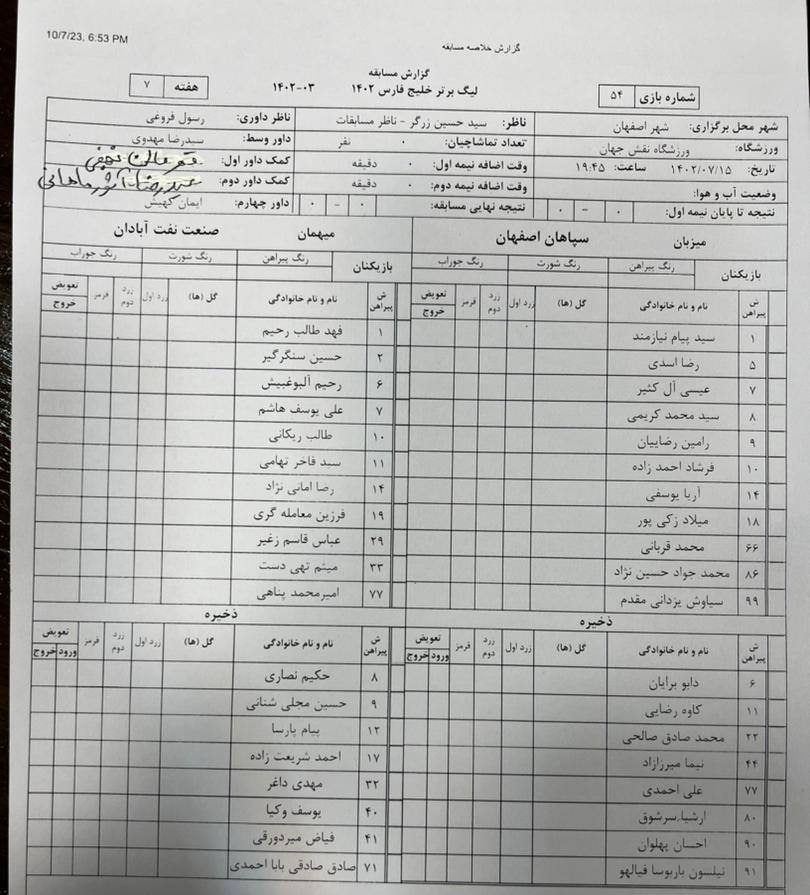 10/7/23, 6:53 PM
گزارش خلاصه مسابقه
گزارش مسابقه
شماره بازی ۵۴
لیگ برتر خلیج فارس ۱۴۰۲ ۰۳-۱۴۰۲
هفته ۷
شهر محل برگزاری: شهر اصفهان
ناظر: سید حسین زرگر - ناظر مسابقات
ناظر داوری: رسول فروغی
ورزشگاه: ورزشگاه نقش جهان
تعداد تماشاچیان: ۰ نفر
داور وسط: سیدرضا مهدوی
تاریخ: ۱۴۰۲/۰۷/۱۵ ساعت: ۱۹:۴۵
وقت اضافه نیمه اول: ۰ دقیقه
کمک داور اول:
وضعیت آب و هوا:
وقت اضافه نیمه دوم: ۰ دقیقه
کمک داور دوم:
نتیجه تا پایان نیمه اول: ۰ - ۰
نتیجه نهایی مسابقه: ۰ - ۰
داور چهارم: ایمان کهیش
میزبان سپاهان اصفهان
میهمان صنعت نفت آبادان
بازیکنان رنگ پیراهن رنگ شورت رنگ جوراب
بازیکنان رنگ پیراهن رنگ شورت رنگ جوراب
ش پیراهن نام و نام خانوادگی گل (ها) زرد اول زرد دوم قرمز تعویض خروج
ش پیراهن نام و نام خانوادگی گل (ها) زرد اول زرد دوم قرمز تعویض خروج
۱ سید پیام نیازمند
۱ فهد طالب رحیم
۵ رضا اسدی
۲ حسین سنگرگیر
۷ عیسی آل کثیر
۶ رحیم آلبوغبیش
۸ سید محمد کریمی
۷ علی یوسف هاشم
۹ رامین رضاییان
۱۰ طالب ریکانی
۱۰ فرشاد احمد زاده
۱۱ سید فاخر تهامی
۱۴ آریا یوسفی
۱۴ رضا امانی نژاد
۱۸ میلاد زکی پور
۱۹ فرزین معامله گری
۶۶ محمد قربانی
۲۹ عباس قاسم زغیر
۸۶ محمد جواد حسین نژاد
۳۳ میثم تهی دست
۹۹ سیاوش یزدانی مقدم
۷۷ امیرمحمد پناهی
ذخیره
ذخیره
ش پیراهن نام و نام خانوادگی گل (ها) زرد اول زرد دوم قرمز تعویض ورود خروج
ش پیراهن نام و نام خانوادگی گل (ها) زرد اول زرد دوم قرمز تعویض ورود خروج
۶ دابو برایان
۸ حکیم نصاری
۱۱ کاوه رضایی
۹ حسین مجلی شنانی
۲۲ محمد صادق صالحی
۱۲ پیام پارسا
۴۴ نیما میرزازاد
۱۷ احمد شریعت زاده
۷۷ علی احمدی
۳۲ مهدی داغر
۸۰ ارشیا سرشوق
۴۰ یوسف وکیا
۹۰ احسان پهلوان
۴۱ فیاض میردورقی
۹۱ نیلسون باربوسا فیالهو
۷۱ صادق صادقی بابا احمدی